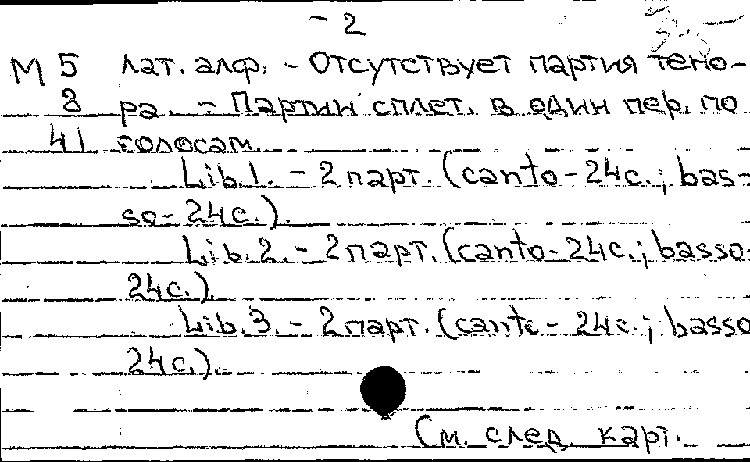 - 2
М 5 лат. алф. - Отсутствует партия тено-
8 ра. - Партии сплет. в один пер. по
41 голосам.
Lib.1. - 2 парт. (canto - 24с.; bas-
so - 24с.).
Lib.2. - 2 парт. (canto - 24с.; basso-
24с.).
Lib.3. - 2 парт. (canto - 24с.; basso
24с.).
См. след. карт.